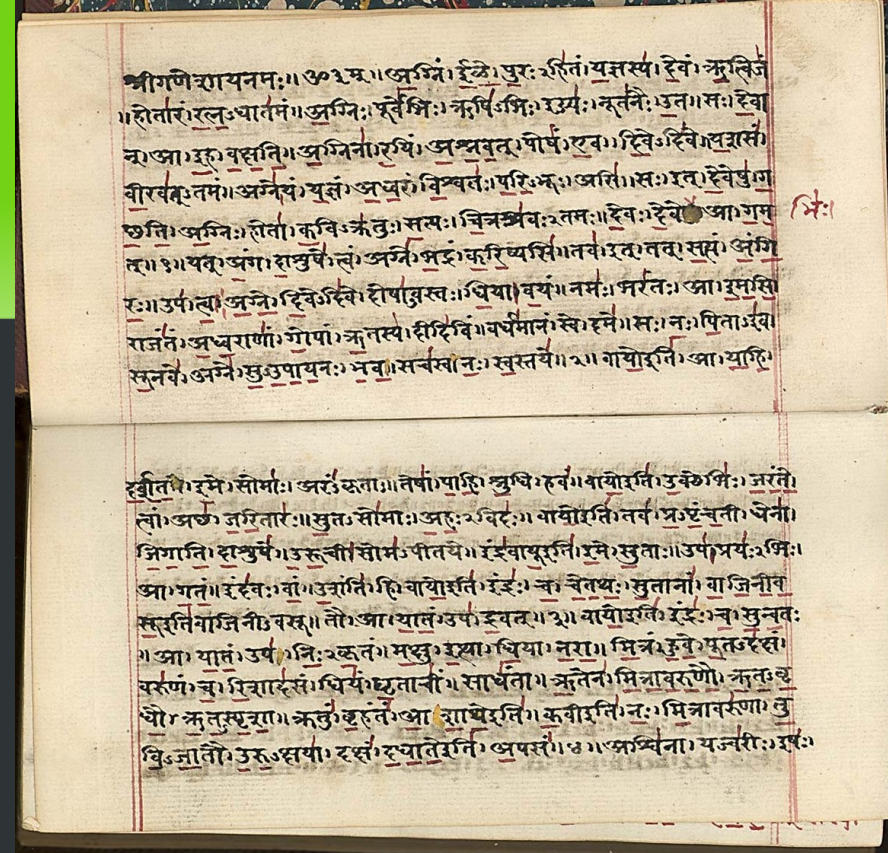 श्रीगणेशायनमः॥ॐ३म्॥अ॒ग्निं। ई॒ळे॒। पु॒रः२हि॑तं। य॒ज्ञस्य॑। दे॒वं। ऋ॒त्विजं॑
॥होता॑रं। र॒त्न॒ऽधात॑मं॥अ॒ग्निः। पूर्वे॑भिः। ऋषि॑ऽभिः। ईड्यः॑। नूत॑नैः। उ॒त॥सः। दे॒वा
न्। आ। इ॒ह। व॒क्ष॒ति॒॥अ॒ग्निना॑। र॒यिं। अ॒श्न॒व॒त्। पोषं॑। ए॒व। दि॒वेऽदि॑वे॥य॒शसं॑
वी॒रव॑त्ऽतमं॥अग्ने॑। यं। य॒ज्ञं। अ॒ध्व॒रं। वि॒श्वतः॑। प॒रि॒ऽभूः। असि॑॥सः। इत्। दे॒वेषु॑। ग॒
च्छ॒ति॒॥अ॒ग्निः। होता॑। क॒विऽक्र॑तुः। स॒त्यः। चि॒त्रश्र॑वः२तमः॥दे॒वः। दे॒वे आ। ग॒म॒
भिः।
त्॥१॥यत्। अं॒ग। दा॒शुषे॑। त्वं। अग्ने॑। भ॒द्रं। क॒रि॒ष्यसि॑॥तव॑। इत्। तत्। स॒त्यं। अं॒गि॒
रः॒॥उप॑। त्वा॒। अ॒ग्ने॒। दि॒वेऽदि॑वे। दोषा॑ऽवस्तः। धि॒या। व॒यं॥नमः॑। भर॑तः। आ। इ॒म॒सि॒
राजं॑तं। अ॒ध्व॒राणां॑। गो॒पां। ऋ॒तस्य॑। दीदि॑विं॥वर्ध॑मानं। स्वे। दमे॑॥सः। नः॒। पि॒ताऽइ॑व।
सू॒नवे॑। अग्ने॑। सु॒ऽउ॒पा॒य॒नः। भ॒व॒॥सच॑स्व। नः॒। स्व॒स्तये॑॥२॥वायो॒इति॑। आ। या॒हि॒।
इ॒मे। सोमाः॑। अरं॑ऽकृताः॥तेषां॑। पा॒हि॒। श्रु॒धि। हवं॑॥वायो॒इति॑। उ॒क्थेभिः॑। ज॒रं॒ते॒
त्वां। अच्छ॑। ज॒रि॒तारः॑॥सु॒तऽसो॑माः। अ॒हः॒२विदः॑॥वायो॒इति॑। तव॑। प्र॒ऽपृं॒च॒ती। धेना॑।
जि॒गा॒ति॒। दा॒शुषे॑॥उ॒रू॒ची। सोम॑ऽपीतये॥इंद्र॑वायू॒इति॑। इ॒मे। सु॒ताः॥उप॑। प्रयः॑२भिः।
आ। ग॒तं॒॥इंद॑वः। वां॒। उ॒शंति॑। हि॥वायो॒इति॑। इंद्रः॑। च॒। चे॒त॒थः॒। सु॒तानां॑। वा॒जि॒नी॒व॒
सू॒इति॑वाजिनीऽवसू॥तौ। आ। या॒तं॒। उप॑। द्र॒वत्॥३॥वायो॒इति॑। इंद्रः॑। च॒। सु॒न्व॒तः
॥आ। या॒तं॒। उप॑। निः॒२कृ॒तं॥म॒क्षु। इ॒त्था। धि॒या। न॒रा॒॥मि॒त्रं। हु॒वे॒। पू॒तऽद॑क्षं।
वरु॑णं। च॒। रि॒शाद॑सं। धियं॑। घृ॒ताचीं॑। साधं॑ता॥ऋ॒तेन॑। मि॒त्रा॒व॒रु॒णौ॒। ऋ॒त॒ऽवृ॒
धौ॒। ऋ॒त॒ऽस्पृ॒शा॒॥क्रतुं॑। बृ॒हंतं॑। आ॒शा॒थे॒इति॑॥क॒वी॒इति॑। नः॒। मि॒त्रावरु॑णा। तु॒
वि॒ऽजा॒तौ। उ॒रु॒ऽक्षया॑। दक्षं॑। द॒धा॒ते॒इति॑। अ॒पसं॑॥४॥अश्वि॑ना। यज्व॑रीः। इषः॑।